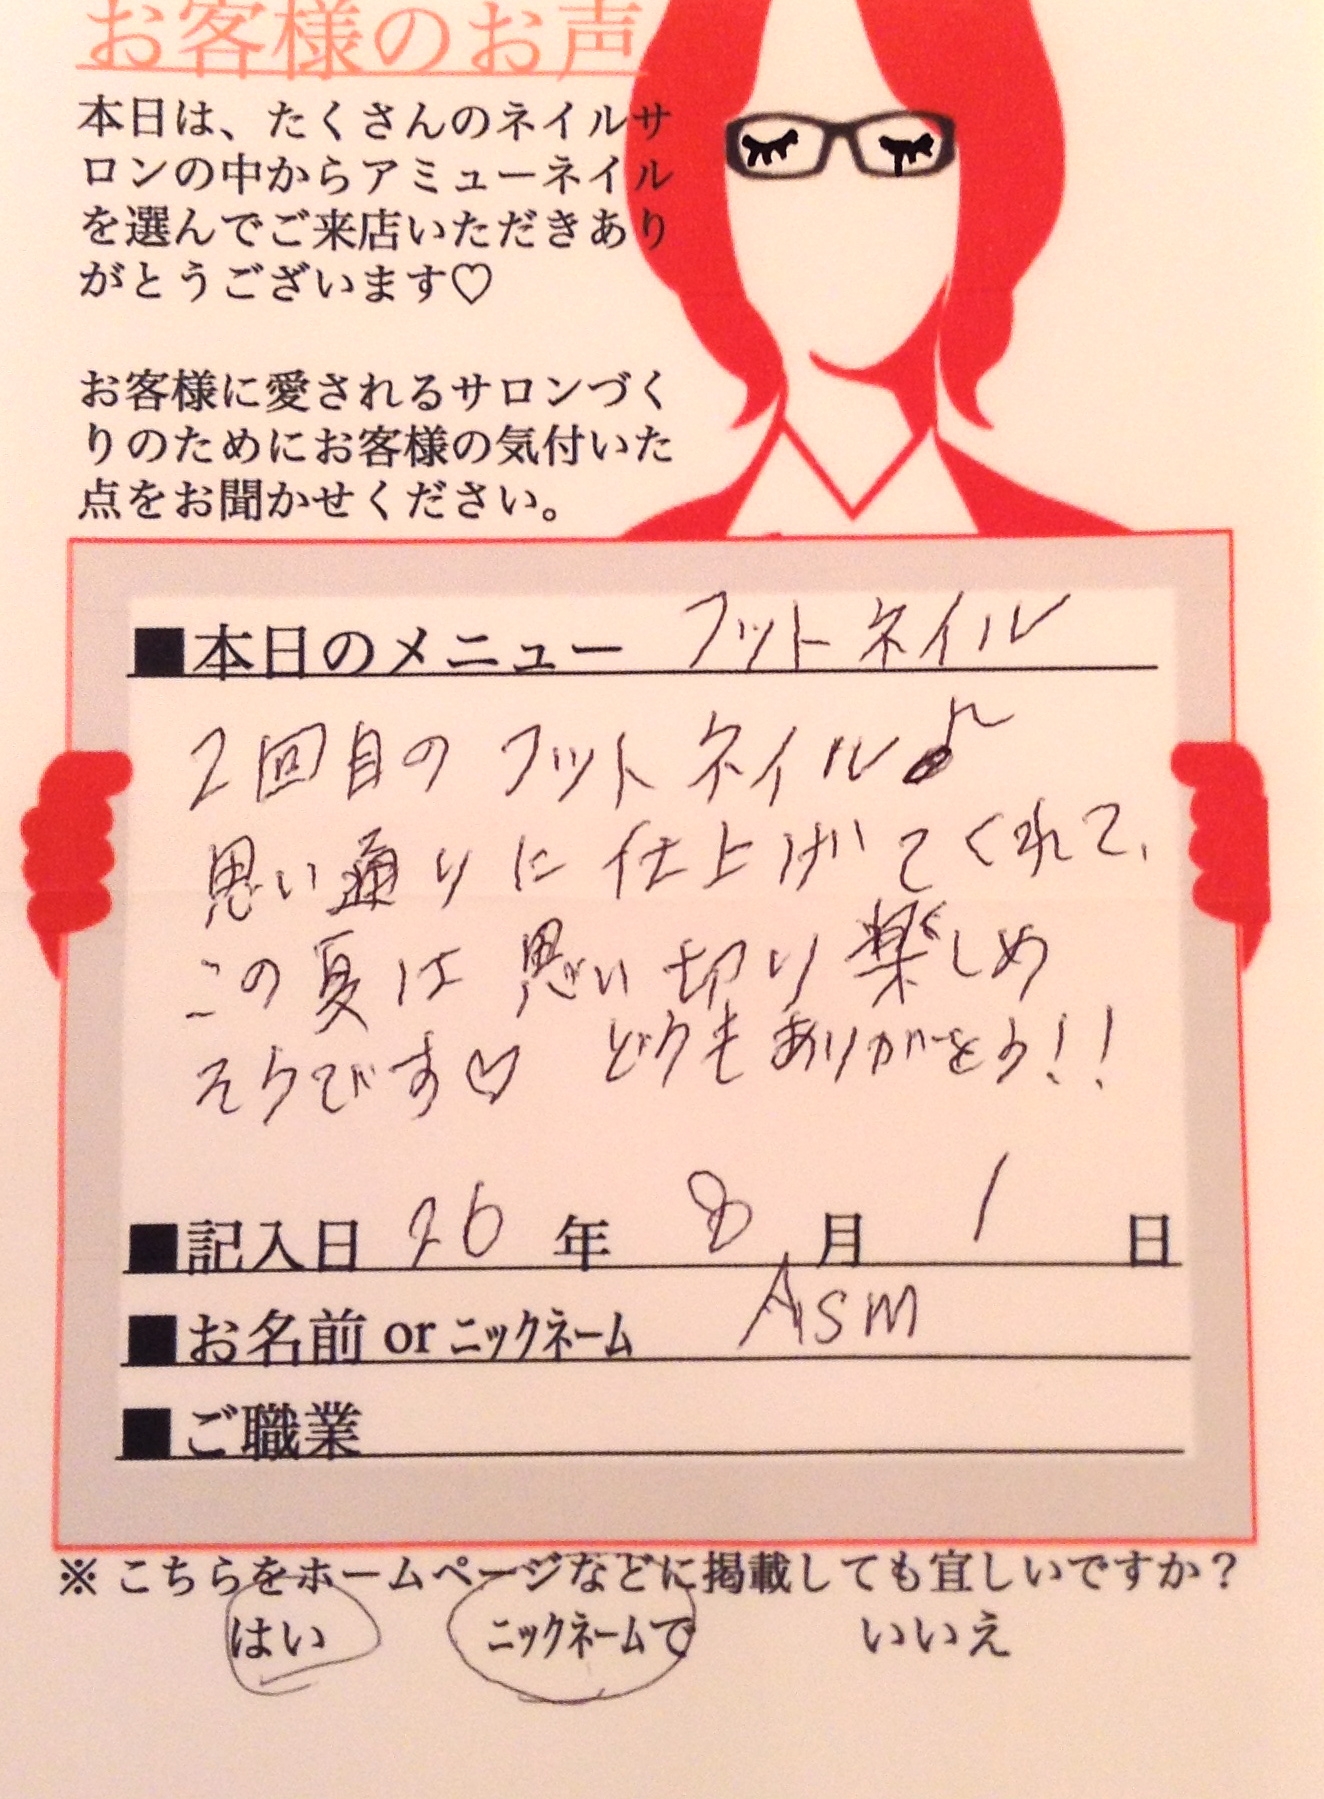 お客様のお声
本日は、たくさんのネイルサ
ロンの中からアミューネイル
を選んでご来店いただきあり
がとうございます♡
お客様に愛されるサロンづく
りのためにお客様の気付いた
点をお聞かせください。
■本日のメニュー フットネイル
2回目のフットネイル♪
思い通りに仕上げてくれて、
この夏は思い切り楽しめ
そうです♡ どうもありがとう!!
■記入日 26年 8月 1日
■お名前 or ニックネーム Asm
■ご職業
※こちらをホームページなどに掲載しても宜しいですか？
はい ニックネームで いいえ